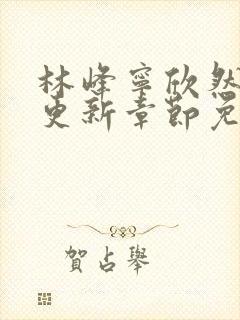 林峰寧欣然
更新章節免
賀占舉